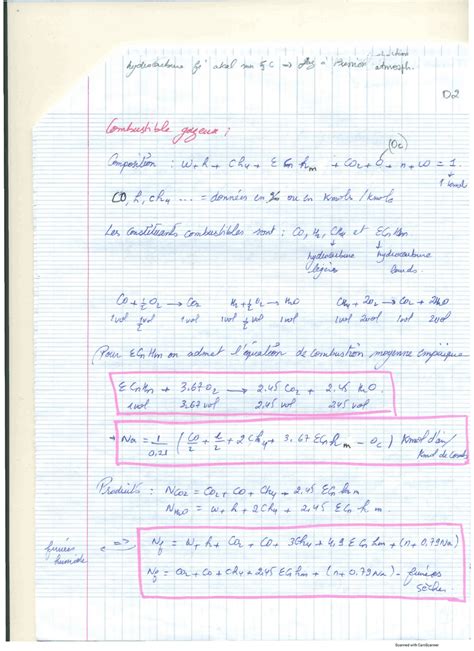 D2
Combustible gazeux :
(Oc)
Composition : W + h + CH4 + ΣCnHm + CO2 + O + n + W = 1
CO, h, CH4 ... = données en % ou en Kmol / Kmolc
Les constituants combustibles sont : CO, H2, CH4 et ΣCnHm
hydrocarbure hydrocarbure
légers lourds.
CO + 1/2 O2 → CO2 H2 + 1/2 O2 → H2O CH4 + 2O2 → CO2 + 2H2O
1vol 1/2vol 1vol 1vol 1/2vol 1vol 1vol 2vol 1vol 2vol
Pour ΣCnHm on admet l'équation de combustion moyenne empirique
ΣCnHm + 3.67O2 → 2.45 CO2 + 2.45 H2O.
1vol 3.67vol 2.45 vol 2.45 vol
→ Na = 1/0.21 (CO/2 + h/2 + 2CH4 + 3.67 ΣCnHm - Oc) Kmol d'air/
Kmol de comb
Produits : NCO2 = CO2 + CO + CH4 + 2.45 ΣCnHm
NH2O = W + h + 2CH4 + 2.45 ΣCnHm.
fumées humide ⇒ Nf = W + h + CO2 + CO + 3CH4 + 4.9 ΣCnHm + (n + 0.79Na)
Nf = CO2 + CO + CH4 + 2.45 ΣCnHm + (n + 0.79Na) - fumées
sèches
Scanned with CamScanner